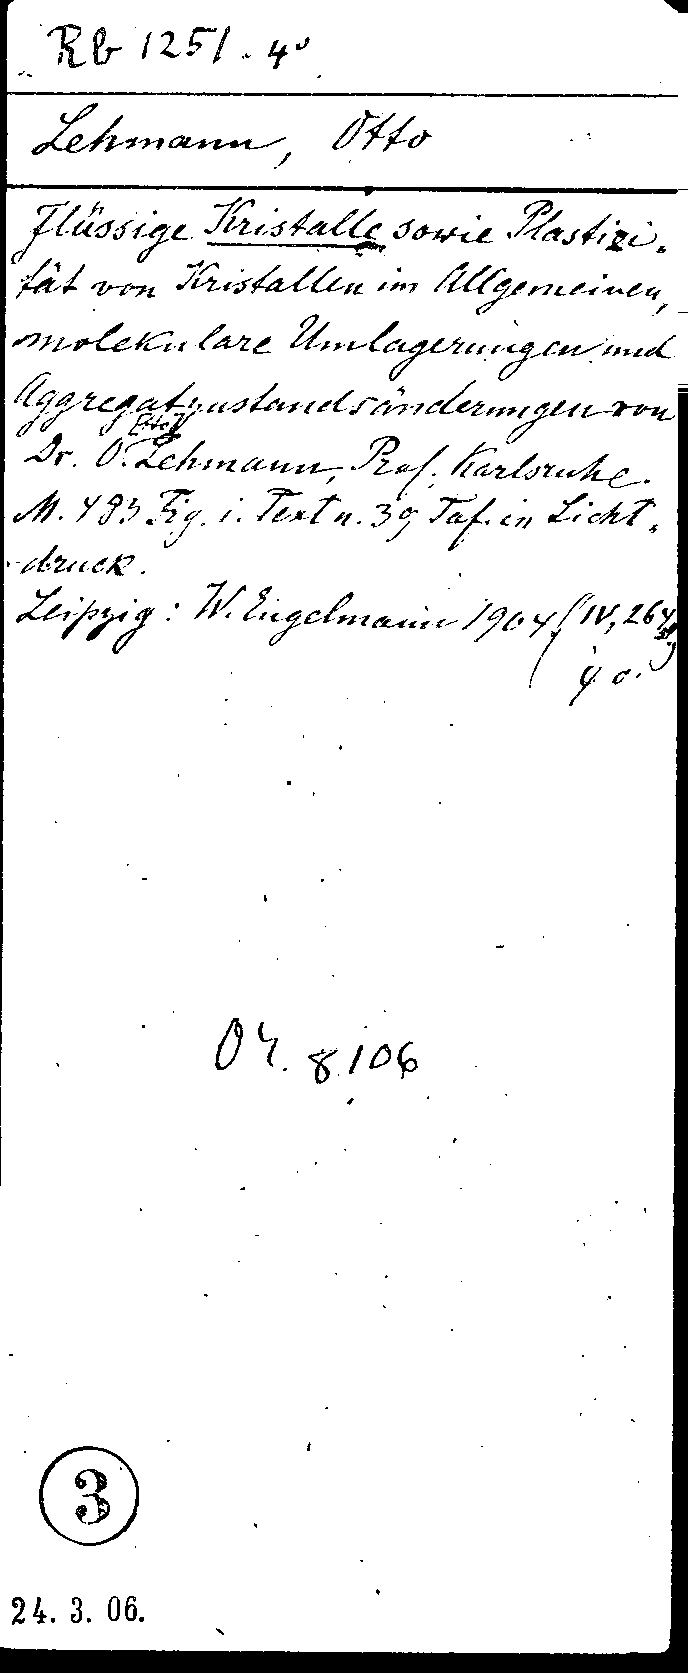 Rb 1251. 4°
Lehmann, Otto
Flüssige Kristalle sowie Plastizi-
tät von Kristallen im Allgemeinen,
molekulare Umlagerungen und
Aggregatzustandsänderungen von
[Otto]
Dr. O. Lehmann, Prof. Karlsruhe.
M. 483 Fig. i. Text u. 39 Taf. in Licht-
druck.
Leipzig: W. Engelmann 1904 (IV, 264
4°.
04. 8106
3
24. 3. 06.